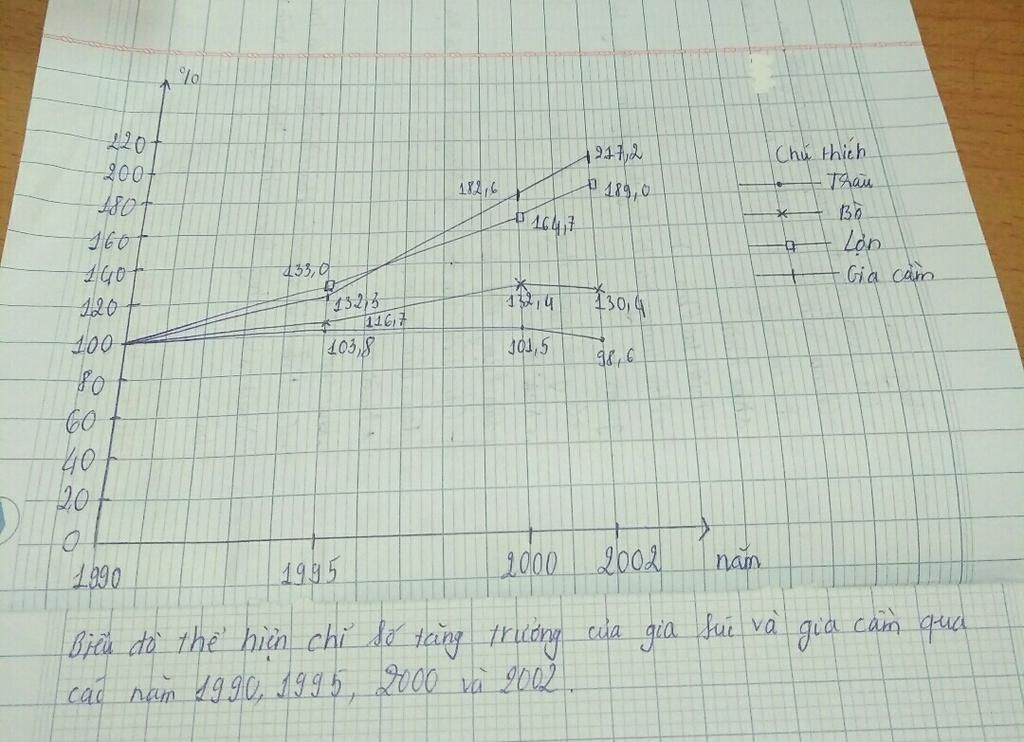 %
220
200
180
160
140
120
100
80
60
40
20
0
217,2
182,6
189,0
164,7
133,0
132,3
116,7
103,8
132,4
130,4
101,5
98,6
Chú thích
Trâu
Bò
Lợn
Gia cầm
1990 1995 2000 2002 năm
Biểu đồ thể hiện chỉ số tăng trưởng của gia súc và gia cầm qua
các năm 1990, 1995, 2000 và 2002.